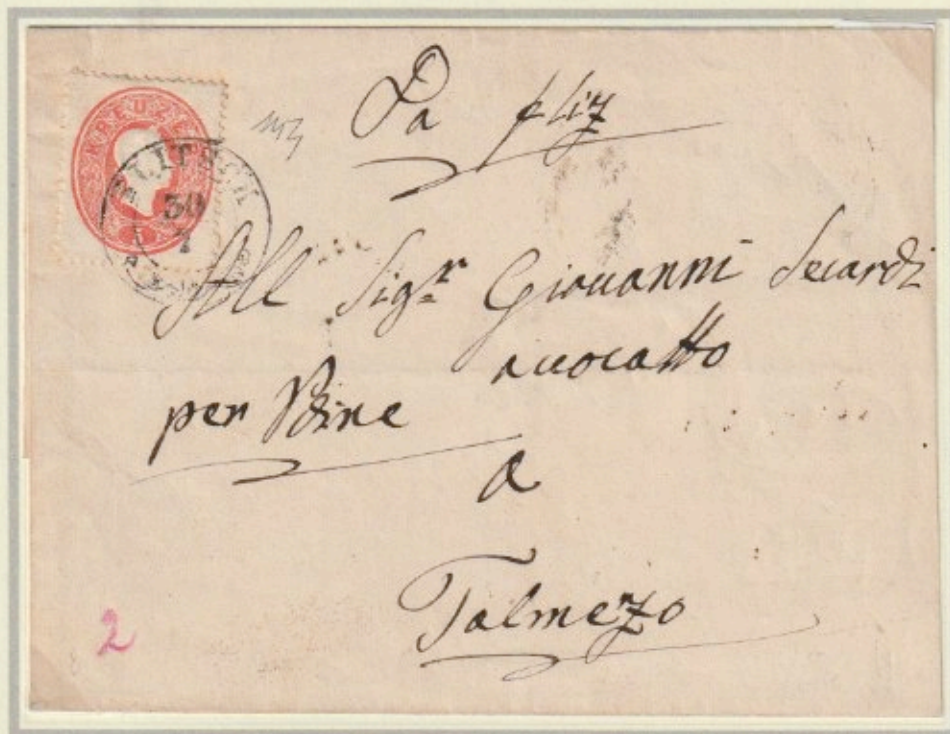 KREUZER
5
FLITSCH
30
7
Da fliz
All Sig.r Giovanni Secardi
avocatto
per Udine
a
Talmezo
2